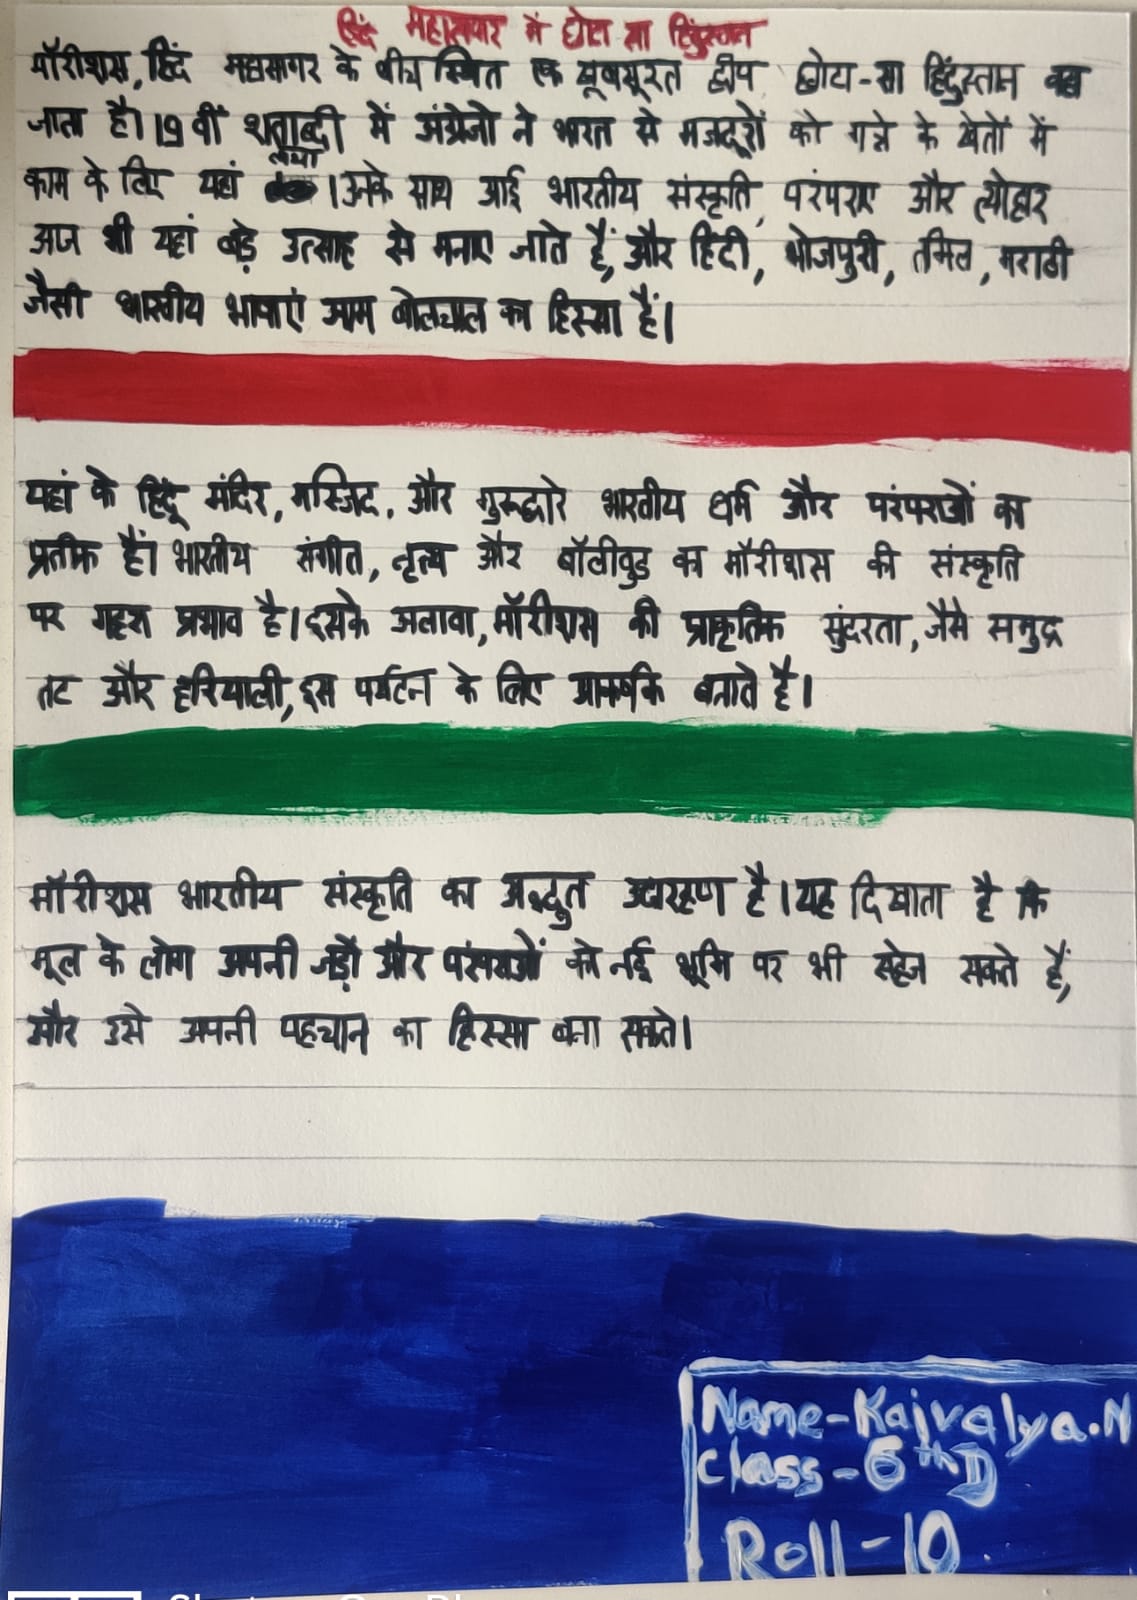 हिंद महासागर में छोटा सा हिंदुस्तान
मॉरीशस, हिंद महासागर के बीच स्थित एक खूबसूरत द्वीप छोटा-सा हिंदुस्तान कहा
जाता है। 19 वीं शताब्दी में अंग्रेजो ने भारत से मजदूरों को गन्ने के खेतों में
काम के लिए यहां लाया । उनके साथ आई भारतीय संस्कृति, परंपराए और त्योहार
आज भी यहां बड़े उत्साह से मनाए जाते हैं, और हिंदी, भोजपुरी, तमिल, मराठी
जैसी भारतीय भाषाएं आम बोलचाल का हिस्सा हैं।
यहां के हिंदू मंदिर, मस्जिद, और गुरुद्वारे भारतीय धर्म और परंपराओं का
प्रतीक हैं। भारतीय संगीत, नृत्य और बॉलीवुड का मौरीशस की संस्कृति
पर गहरा प्रभाव है। इसके अलावा, मॉरीशस की प्राकृतिक सुंदरता, जैसे समुद्र
तट और हरियाली, इस पर्यटन के लिए आकर्षक बनाते है।
मॉरीशस भारतीय संस्कृति का अद्भुत उदाहरण है। यह दिखाता है कि
मूल के लोग अपनी जड़ों और परंपराओं को नई भूमि पर भी सहेज सकते हैं,
और उसे अपनी पहचान का हिस्सा बना सकते।
Name-Kaivalya.N
Class-6th D
Roll-10.